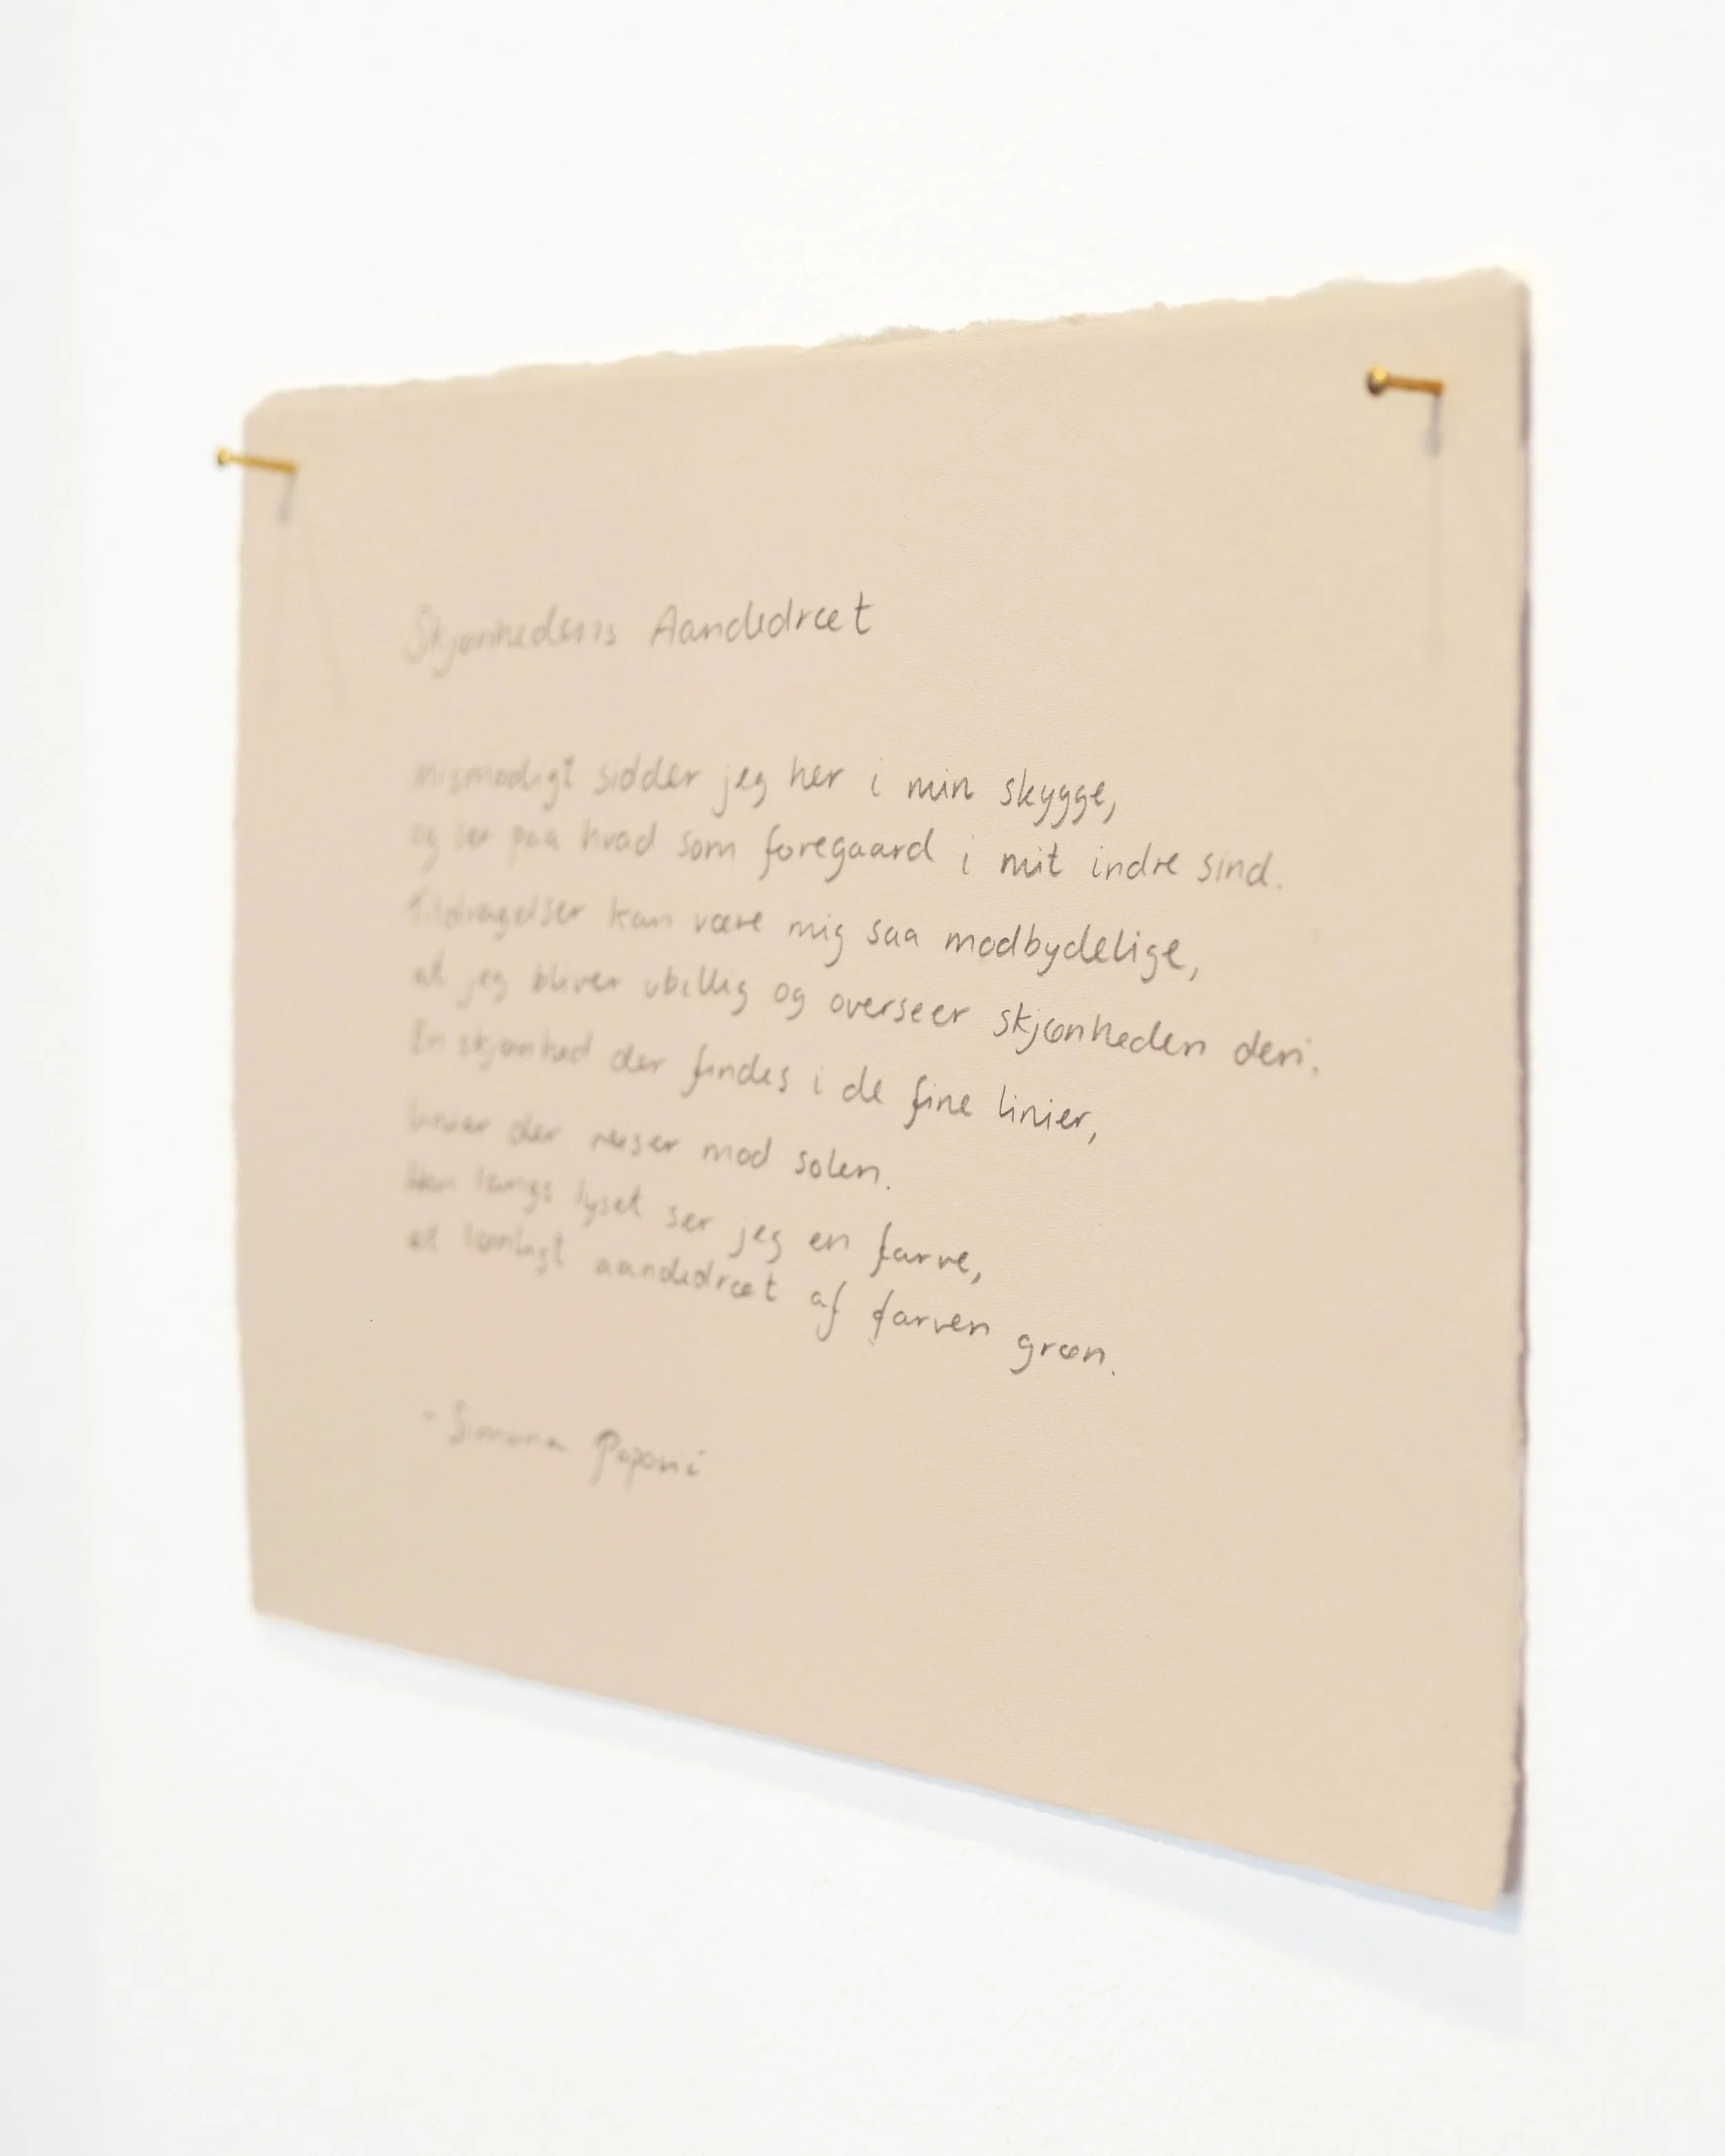 Skjønhedens Aandedræt
mismodigt sidder jeg her i min skygge,
og ser paa hvad som foregaard i mit indre sind.
Tildragelser kan være mig saa modbydelige,
at jeg bliver ubillig og overseer skjønheden deri.
En skjønhed der findes i de fine linier,
linier der reiser mod solen.
Hen langs lyset ser jeg en farve,
et lønligt aandedræt af farven grøn.
- Simona Poponi